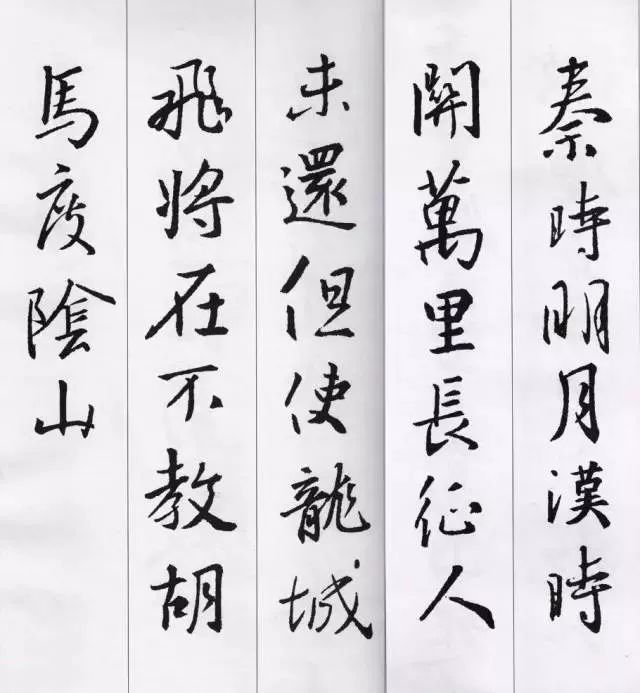 秦時明月漢時
關萬里長征人
未還但使龍城
飛将在不教胡
馬度陰山